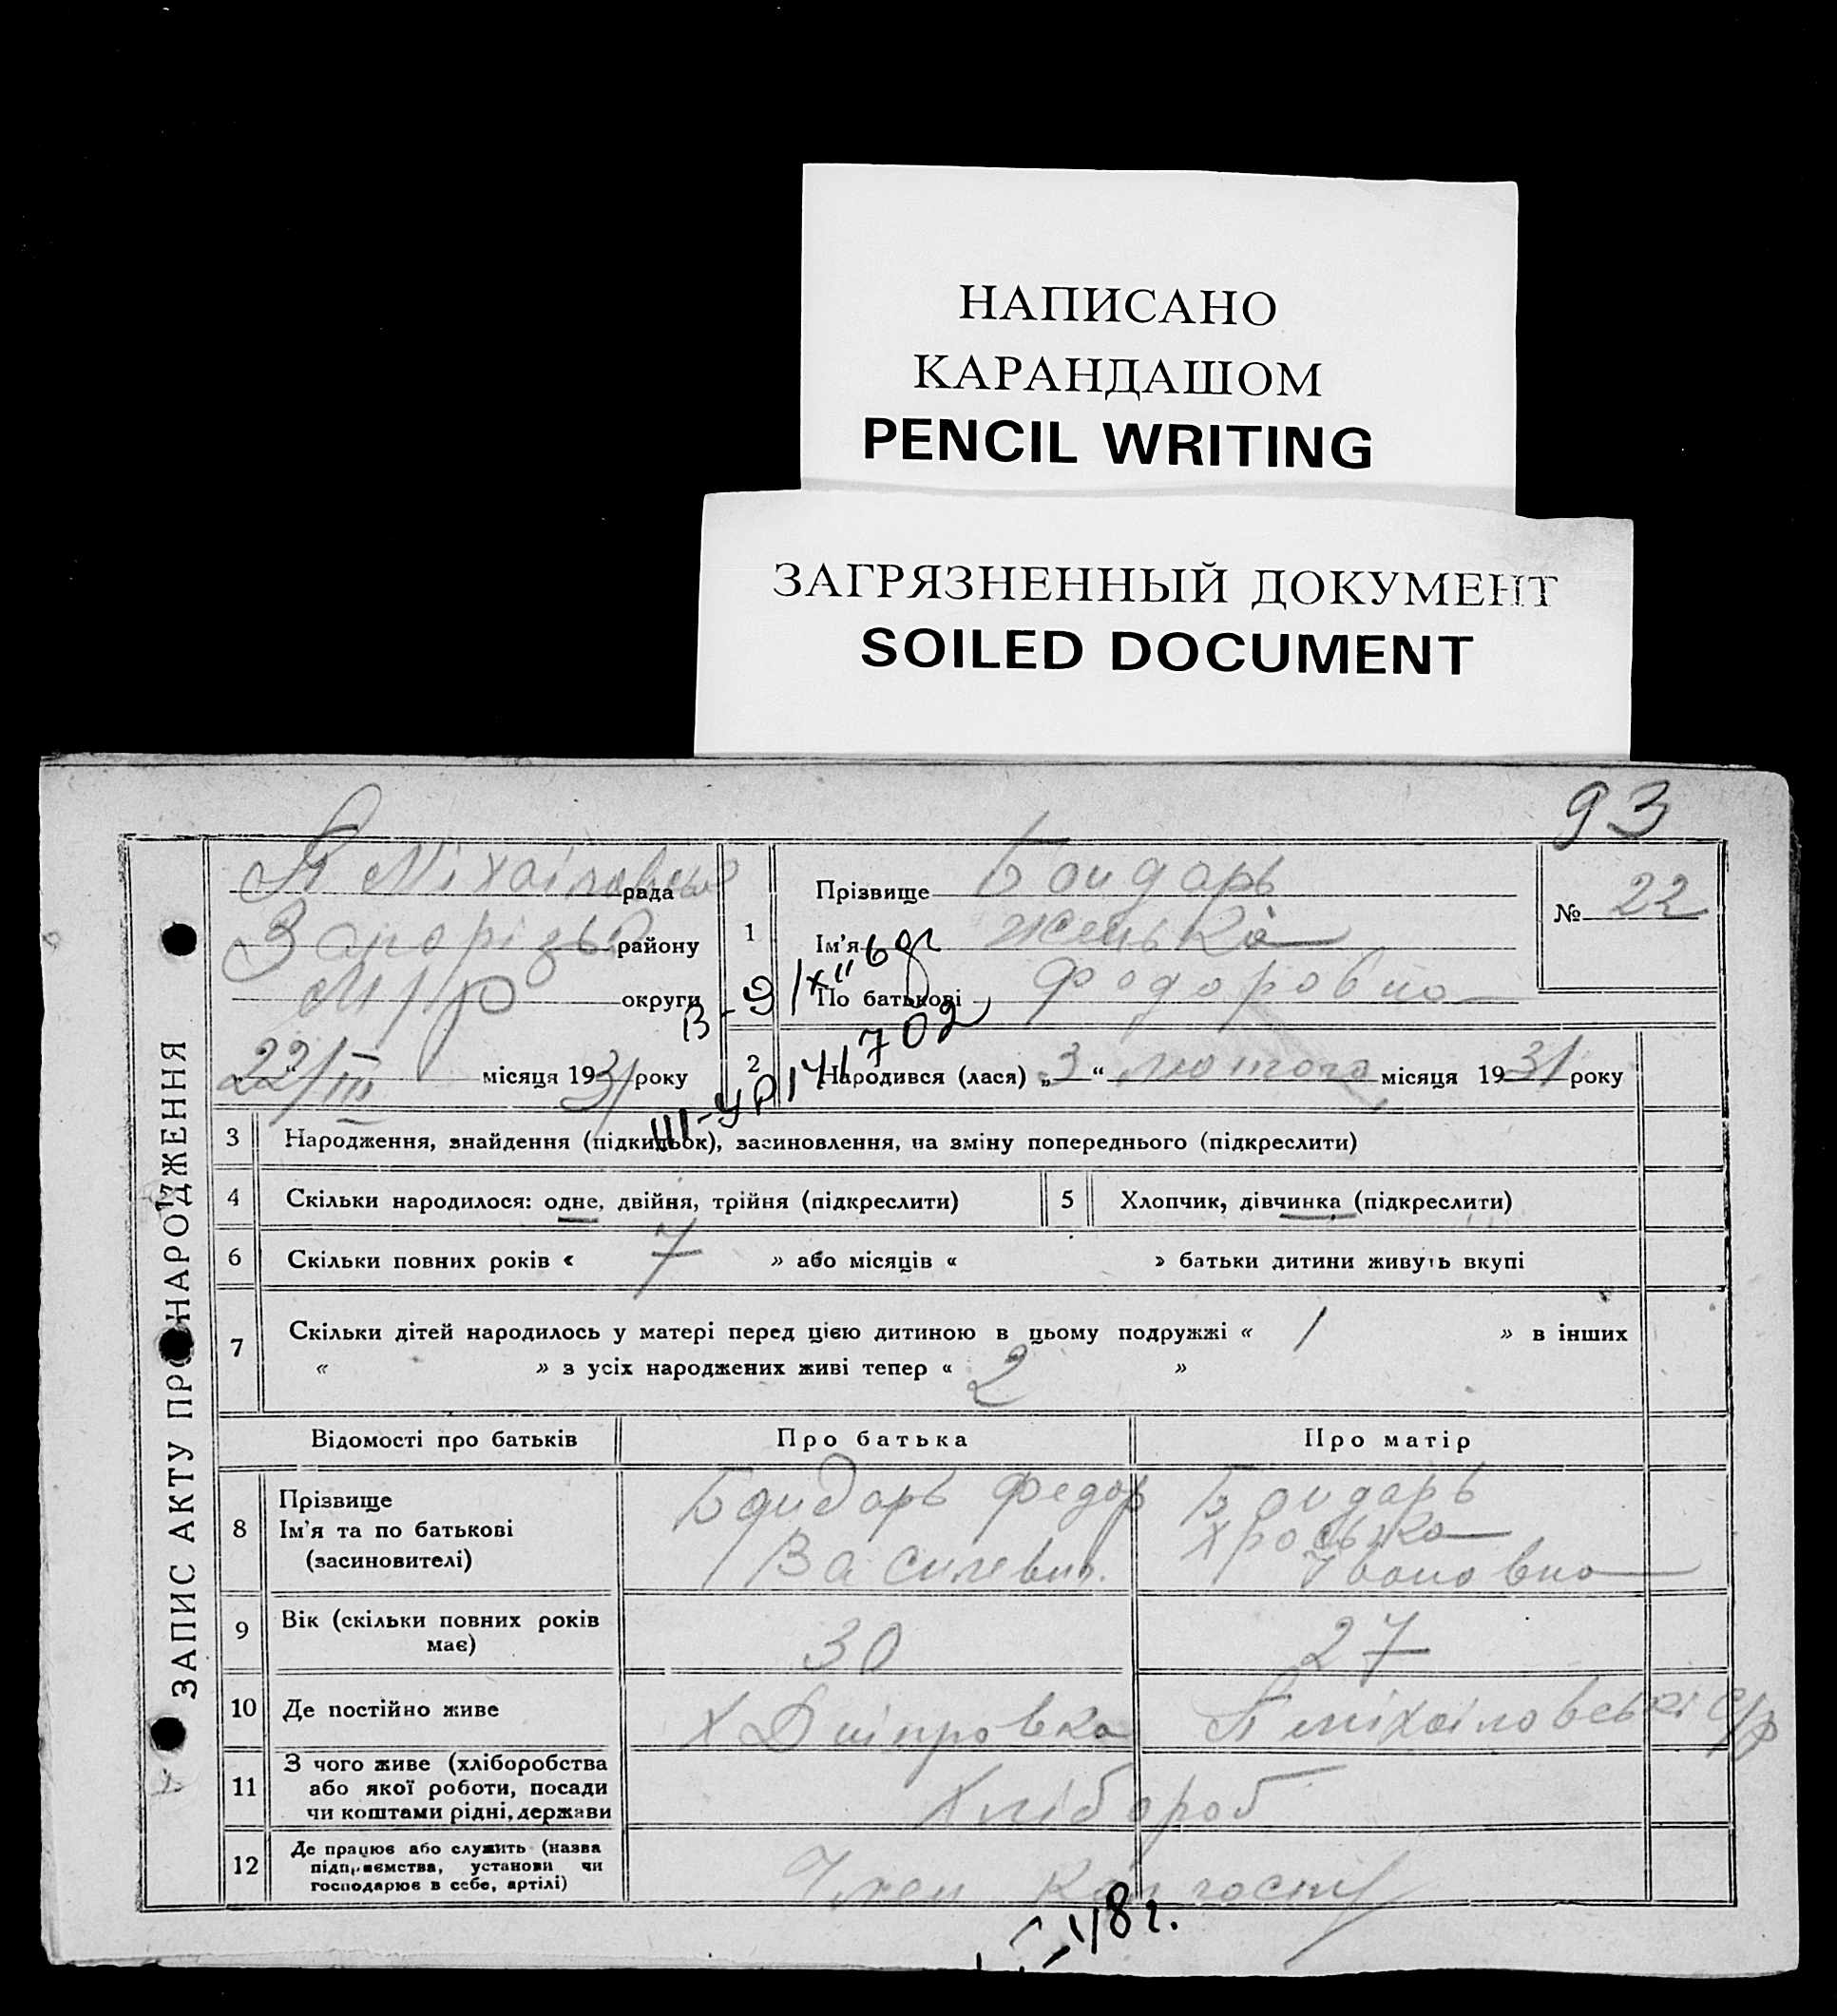 НАПИСАНО
КАРАНДАШОМ
PENCIL WRITING
ЗАГРЯЗНЕННЫЙ ДОКУМЕНТ
SOILED DOCUMENT
93
ЗАПИС АКТУ ПРО НАРОДЖЕННЯ
П Міхаіловсько рада
Запорізько району
округи
22/III місяця 1931 року
1
Прізвище Бондарь
Ім'я Женька
По батькові Федоровна
№ 22
2 Народився (лася) „3“ лютого місяця 1931 року
3 Народження, знайдення (підкидьок), засиновлення, на зміну попереднього (підкреслити)
4 Скільки народилося: одне, двійня, трійня (підкреслити)
5 Хлопчик, дівчинка (підкреслити)
6 Скільки повних років « 7 » або місяців « » батьки дитини живуть вкупі
7 Скільки дітей народилось у матері перед цією дитиною в цьому подружжі « 1 » в інших
« » з усіх народжених живі тепер « 2 »
Відомості про батьків Про батька Про матір
8 Прізвище
Ім'я та по батькові
(засиновителі)
Бондарь Федор
Василевич.
Бондарь
Хроська
Івановна
9 Вік (скільки повних років
має)
30 27
10 Де постійно живе Х Дніпровка П міхаіловські с/р
11 З чого живе (хліборобства
або якої роботи, посади
чи коштами рідні, держави
Хлібороб
12 Де працює або служить (назва
підприємства, установи чи
господарює в себе, артілі)
Член
48 г.